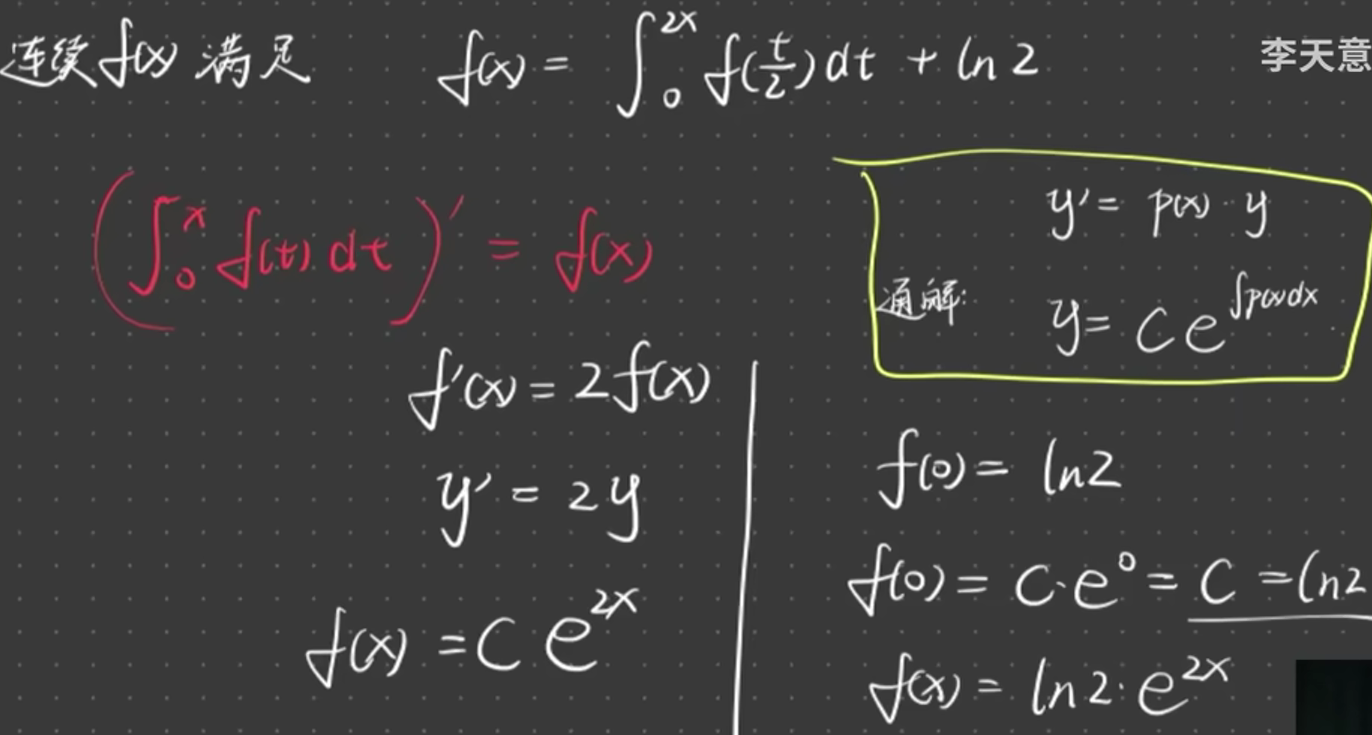 连续f(x)满足 f(x) = ∫₀^{2x} f(t/2)dt + ln2
李天意
(∫₀^x f(t)dt)′ = f(x)
y′ = p(x)·y
通解: y = Ce^{∫p(x)dx}
f′(x) = 2f(x)
y′ = 2y
f(x) = Ce^{2x}
f(0) = ln2
f(0) = C·e⁰ = C = ln2
f(x) = ln2·e^{2x}